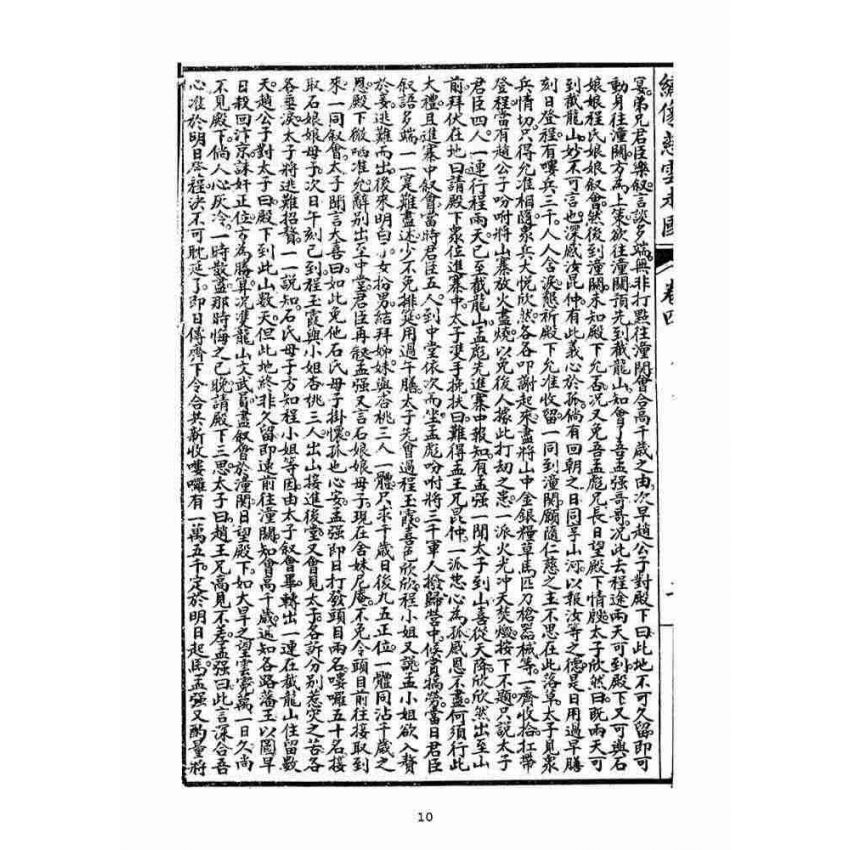 繡像慈雲走國 卷四
宴弟兄君臣樂叙言談多端無非打點往潼關會合高千歲之由次早趙公子對殿下曰此地不可久留即可
動身往潼關方為上策欲往潼關預先到截龍山知會了吾孟强哥哥况此去程途兩天可到殿下又可與石
娘娘程氏娘娘叙會然後到潼關未知殿下允否况又免吾孟彪兄長日望殿下情殷太子欣然曰既兩天可
到截龍山妙不可言也深感汝昆仲有此義心於孤倘有回朝之日同享山河以報汝等之德是日用過早膳
刻日登程有嘍兵三千人人含淚懇祈殿下允准收留一同到潼關願隨仁慈之主不思在此落草太子見衆
兵情切只得允准相隨衆兵大悅欣然各各叩謝起來盡將山中金銀糧草馬匹刀槍器械等一齊收拾扛帶
登程當有趙公子吩咐將山寨放火盡燒以免後人據此打劫之患一派火光冲天焚燬按下不題只說太子
君臣四人一連行程兩天已至截龍山孟彪先進寨中報知有孟强一聞太子到山喜從天降欣欣然出至山
前拜伏在地曰請殿下衆位進寨中太子雙手挽扶曰難得孟王兄昆仲一派忠心為孤感恩不盡何須行此
大禮且進寨中叙會當時君臣五人到中堂依次而坐孟彪吩咐將三千軍人撥歸營中候賞犒勞當日君臣
叙語多端一一寔難盡述少不免排筵用過午膳太子先會過程玉霞喜色欣欣程小姐又說孟小姐欲入贅
於妾逃難而出後來明白女扮男結拜姊妹與杏桃三人一體只求千歲日後九五正位一體同沾千歲之
恩殿下微哂准允辭别出至中堂君臣再叙孟强又言石娘娘母子現在舍妹尼庵不免令頭目前往接取到
來一同叙會太子聞言大喜曰如此免他石氏母子掛懷孤也心安孟强即日打發頭目兩名嘍囉五十名接
取石娘娘母子次日午刻已到程玉霞與小姐杏桃三人出山接進後堂又會見太子各訴分别惹災之苦各
各垂淚太子將逃難招贅一一說知石氏母子方知程小姐等因由太子叙會畢轉出一連在截龍山住留數
天趙公子對太子曰殿下到此山數天但此地終非久留即速前往潼關知會高千歲通知各路藩王以圖早
日殺回汴京誅奸正位方為勝算况雙龍山文武員盡叙會於潼關日望殿下如大旱之望雲霓萬一日久尚
不見殿下倘人心灰冷一時散盡那時悔之已晚請殿下三思太子曰趙王兄高見不差孟强曰此言深合吾
心准於明日登程決不可躭延了即日傳齊下令合共新收嘍囉有一萬五千定於明日起馬孟强又酌量將
10